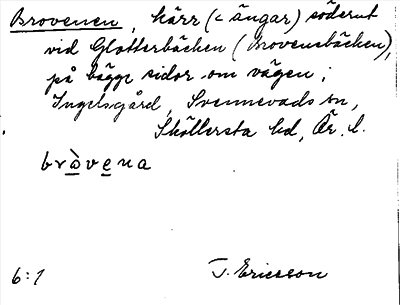 Brovenen, kärr (< ängar) söderut
vid Glotterbäcken (Brovensbäcken),
på bägge sidor om vägen;
Ingelsgård, Svennevads sn,
Sköllersta hd, Ör. l.
bròvena
6:1 T. Ericsson